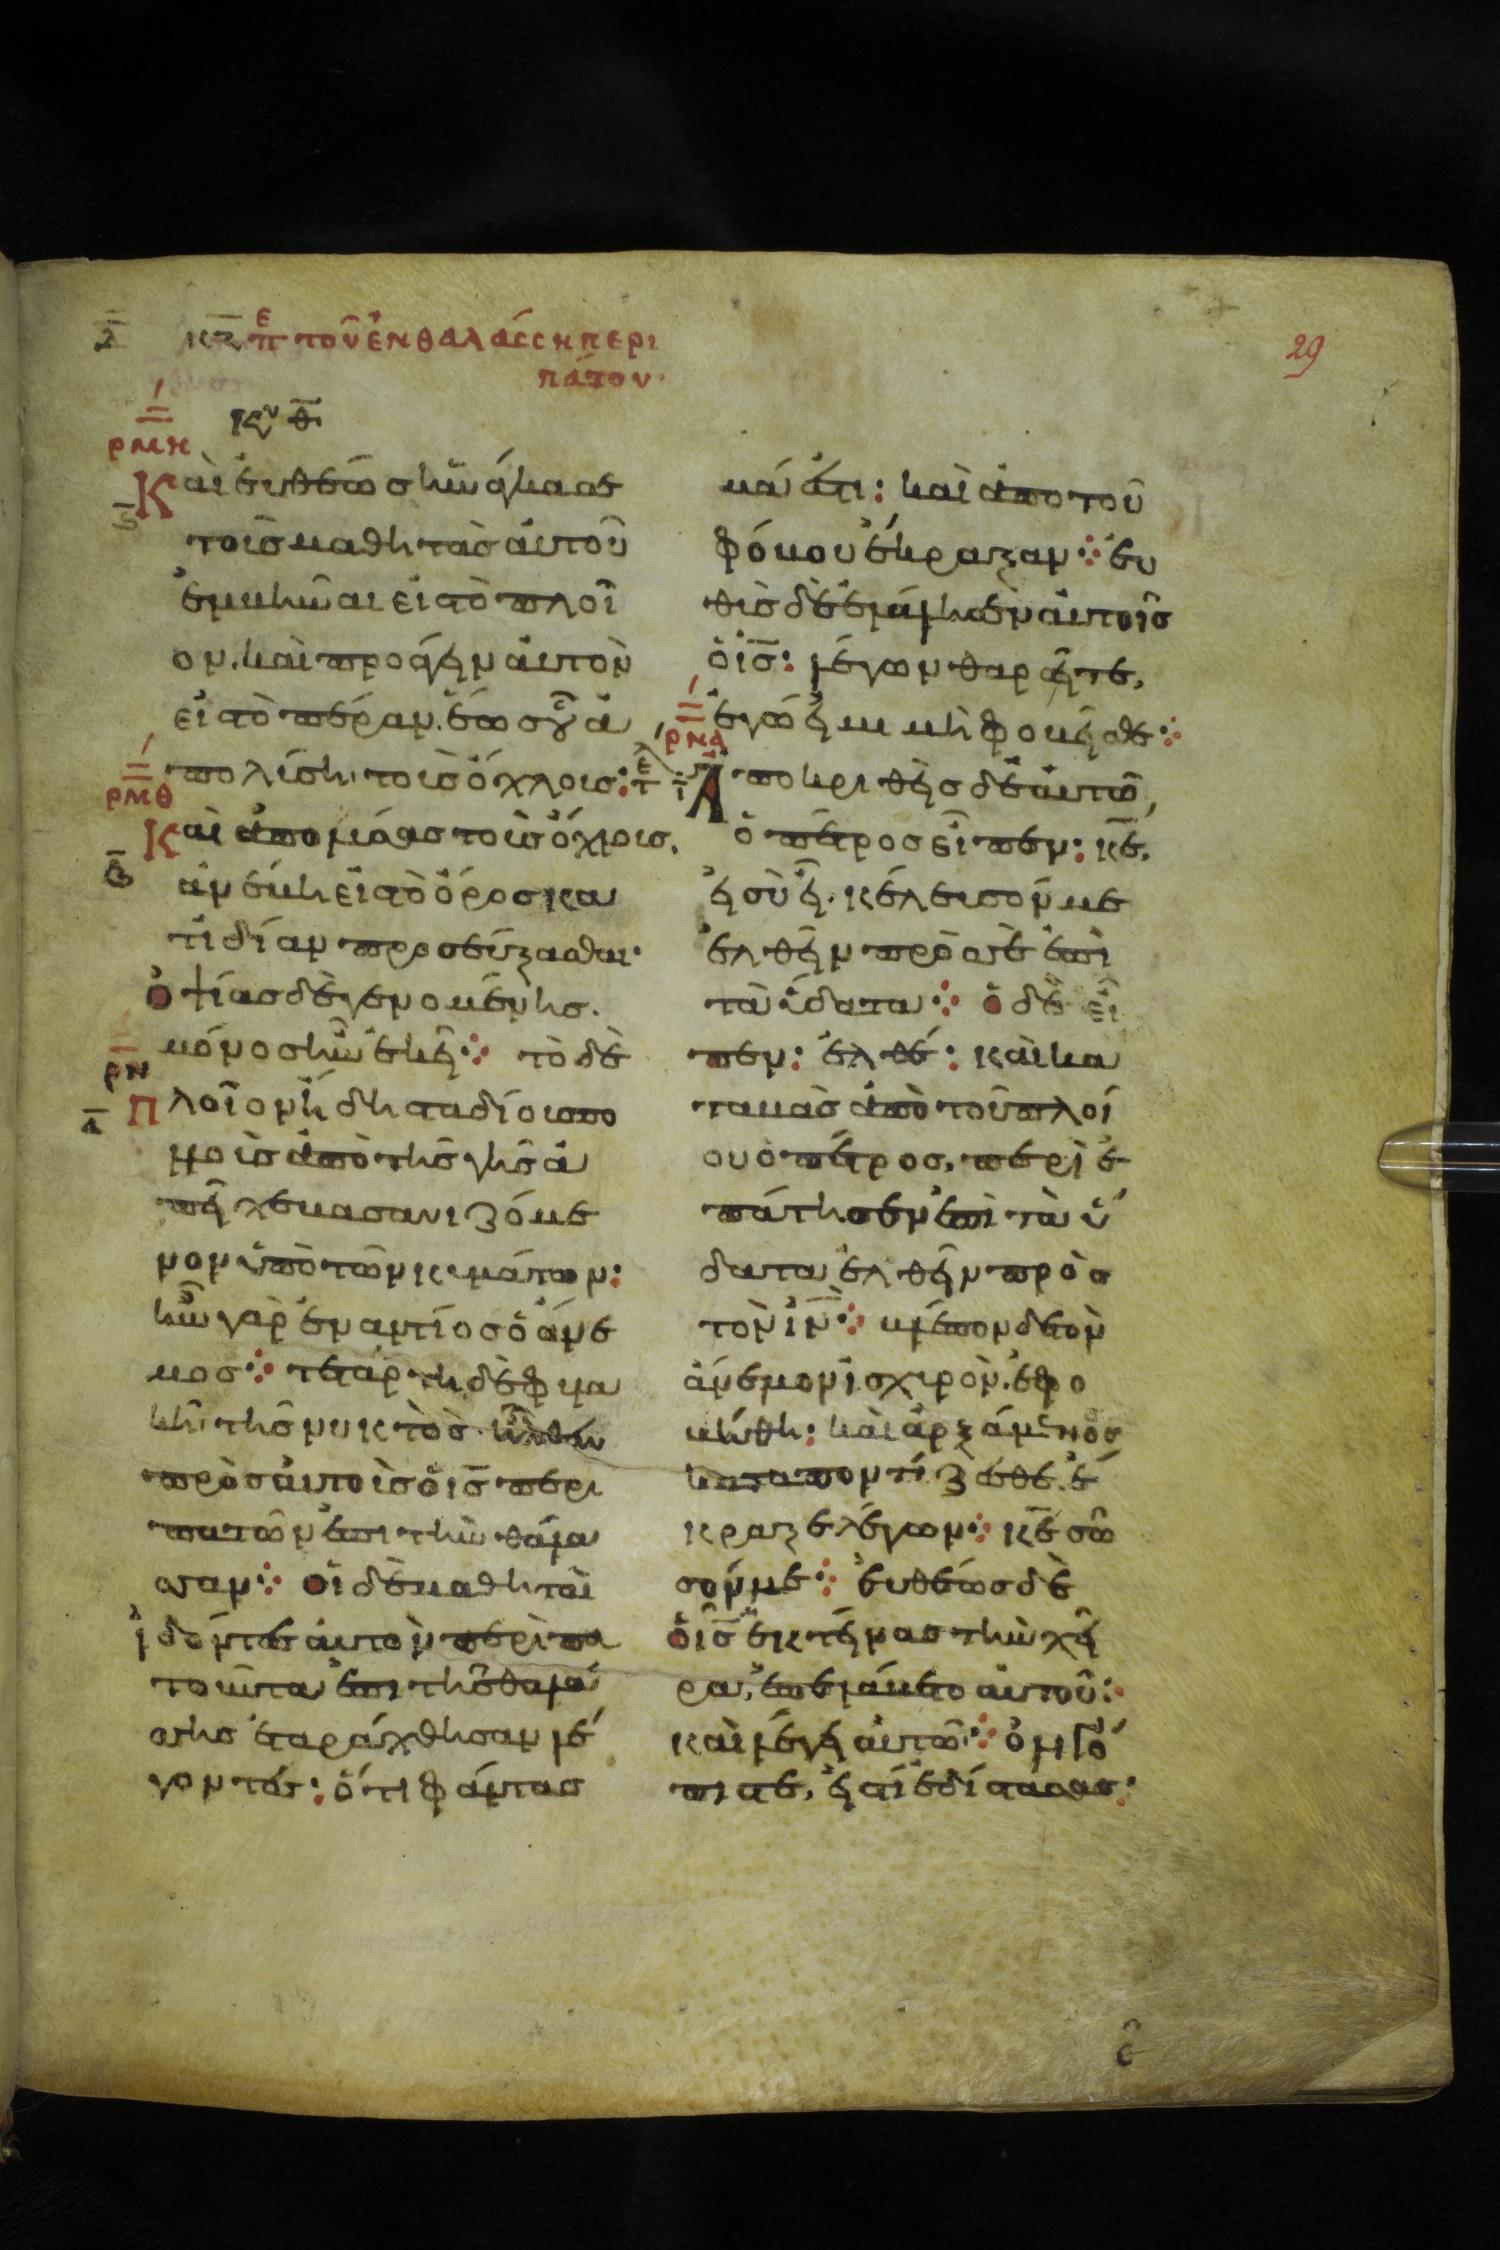 κζ πε τοῦ ἐν θαλάσση περι
πάτου·
29
κυ θ
ρμη
Καὶ ἐυθέως ἠνάγκασε
τοὺς μαθητὰς ἀυτοῦ
ἐμβῆναι εἰς τὸ πλοῖ
ον, καὶ προάγειν ἀυτὸν
εἰς τὸ πέραν. ἕως οὗ ἀ
πολύση τοὺς ὄχλους:
ρμθ
Καὶ ἀπολύσας τοὺς ὄχλους,
ἀνέβη εἰς τὸ ὄρος κα
τιδίαν προσεύξασθαι·
ὀψίας δὲ γενομένης.
μόνος ἦν ἐκεῖ ⁘ τὸ δὲ
ρν
Πλοῖον ἤδη σταδίους πο
λοὺς ἀπὸ τῆς γῆς ἀ
πεῖχε βασανιζόμε
νον ὑπὸ τῶν κυμάτων:
ἦν γὰρ ἐναντίος ὁ ἄνε
μος ⁘ τετάρτη δὲ φυλα
κῆ τῆς νυκτὸς ἦλθεν
πρὸς ἀυτοὺς ὁ ις περι
πατῶν ἐπι τὴν θάλα
σσαν ⁘ οἱ δὲ μαθηταὶ
ἰδόντες ἀυτὸν περὶπα
τοῦντα ἐπι τῆς θαλά
σσης ἐταράχθησαν λέ
γοντες: ὅτι φάντασ
μά ἐστι: καὶ ἀπο τοῦ
φόβου ἔκραξαν ⁘ ἐυ
θὺς δὲ ἐλάλησεν ἀυτοῖς
ὁ ις: λέγων θαρσεῖτε,
ἐγώ εἰμι μὴ φοβεῖσθε ⁘
ρνα
Ἀποκριθεὶς δὲ ἀυτῶ,
ὁ πέτρος εἶπεν: κε,
εἰ σὺ εἶ. κέλευσόν με
ἐλθεῖν πρὸς σὲ ἐπὶ
τὰ ὕδατα ⁘ ὁ δὲ εἶ
πεν: ἐλθέ: καὶ κα
ταβὰς ἀπὸ τοῦ πλοί
ου ὁ πέτρος, περὶε
πάτησεν ἐπὶ τὰ ὕ
δατα ἐλθεῖν πρὸς
τὸν ιν ⁘ βλέπον δὲ τὸν
ἄνεμον ἰσχυρὸν. ἐφο
βήθη: καὶ ἀρξάμενος
καταποντίζεσθε. ἔ
κραξε λέγων ⁘ κε σῶ
σόν με ⁘ ἐυθέως δὲ
ὁ ις ἐκτείνας τὴν χεῖ
ρα, ἐπελάβετο ἀυτοῦ:
καὶ λέγει ἀυτῶ ⁘ ὀλιγό
πιστε, εἰς τί ἐδίστασας: